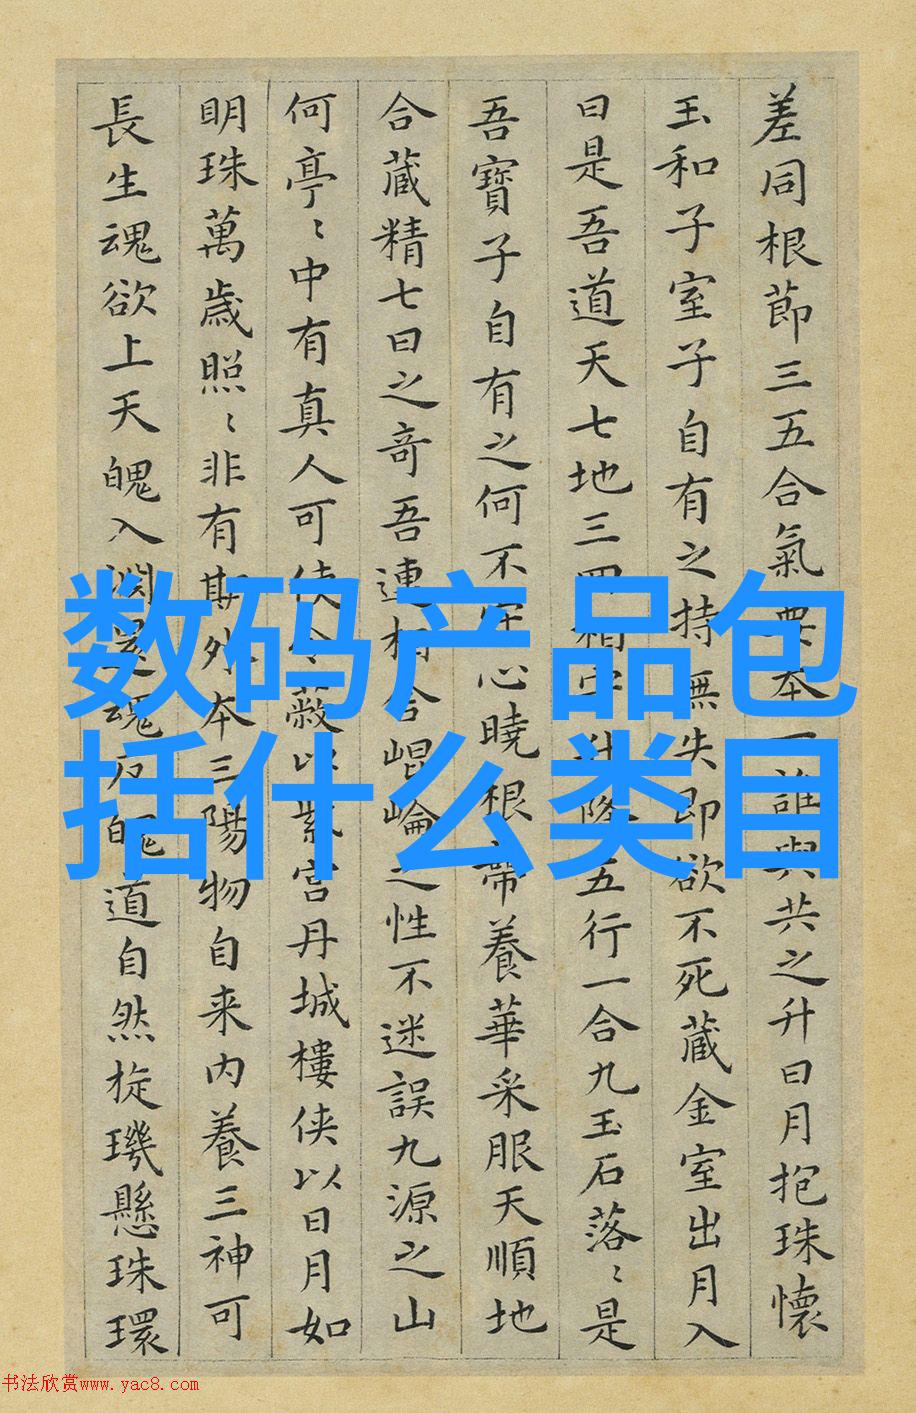 差同根節三五合氣要本一誰與共之升日月抱珠懷
玉和子室子自有之持無失即欲不死藏金室出月入
日是吾道天七地三相守升降五行一合九玉石落〻是
吾寶子自有之何不守心曉根蒂養華采服天順地
合藏精七日之奇吾連相合崐崘之性不迷誤九源之山
何亭〻中有真人可使令蔽以紫宮丹城樓俠以日月如
明珠萬歲照〻非有期外本三陽物自来內養三神可
長生魂欲上天魄入淵還魂反魄道自然旋璣懸珠環
数码产品包
括什么类目
书法欣赏www.yac8.com